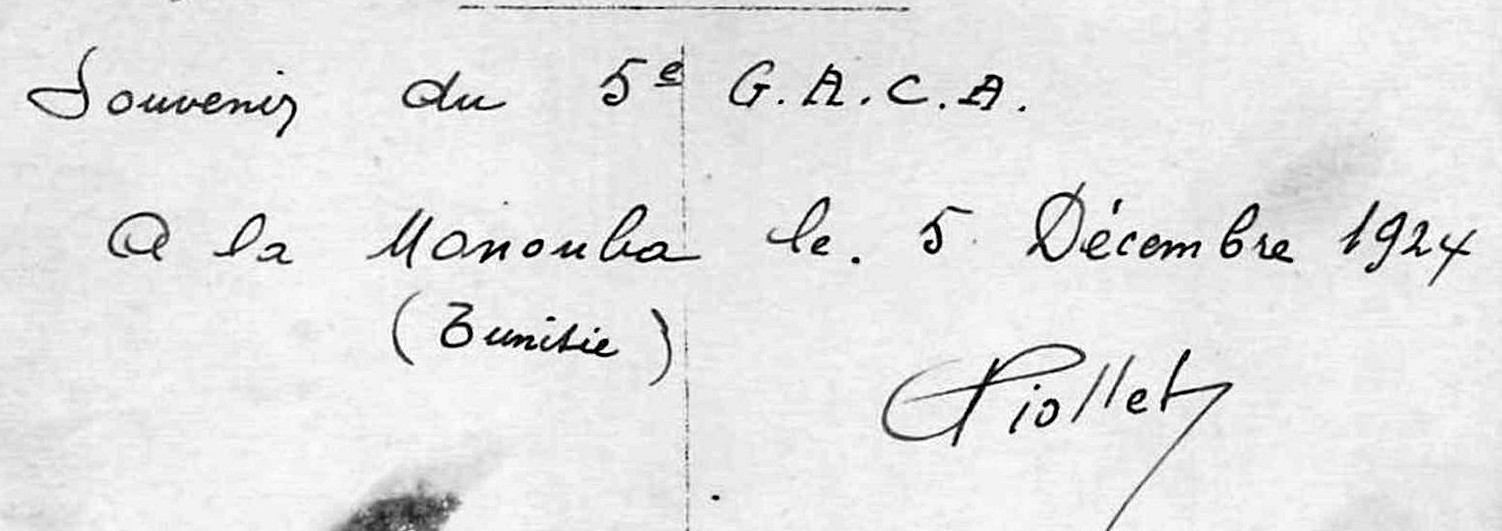 Souvenir du 5e G.A.C.A.
A la Manouba le. 5 Décembre 1924
(Tunisie)
Piollet